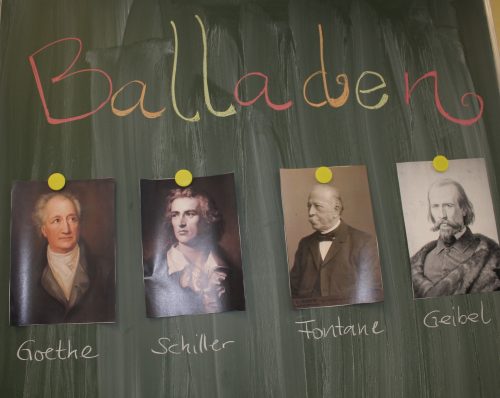 Balladen
Goethe Schiller Fontane Geibel